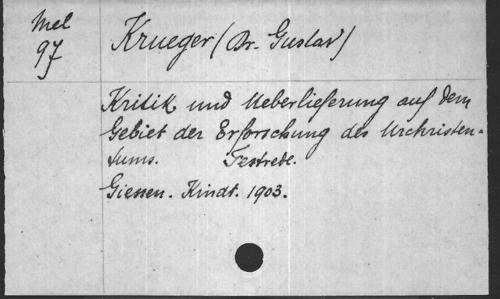 Mel
97
Krueger (Dr. Gustav)
Kritik und Ueberlieferung auf dem
Gebiet der Erforschung des Urchristen-
tums. Festrede.
Giessen. Kindt. 1903.